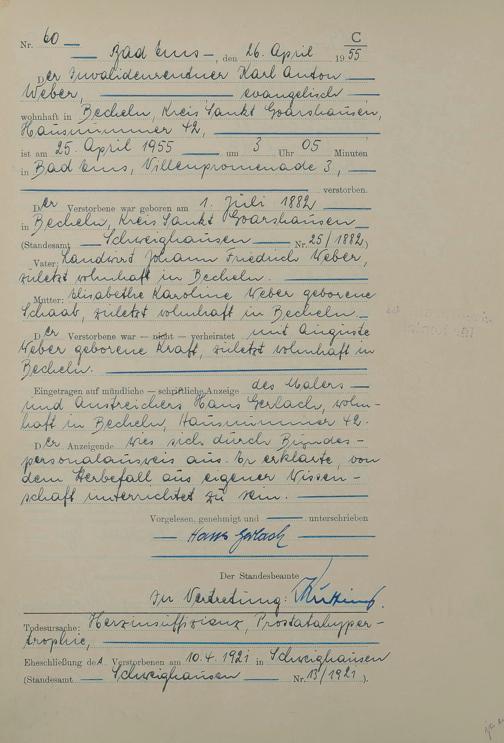 Nr. 60 C
Bad Ems, den 26. April 1955
Der Invalidenrentner Karl Anton
Weber, evangelisch
wohnhaft in Becheln, Kreis Sankt Goarshausen,
Hausnummer 42,
ist am 25. April 1955 um 3 Uhr 05 Minuten
in Bad Ems, Villenpromenade 3,
verstorben.
Der Verstorbene war geboren am 1. Juli 1882
in Becheln, Kreis Sankt Goarshausen
(Standesamt Schweighausen Nr. 25/1882)
Vater: Landwirt Johann Friedrich Weber,
zuletzt wohnhaft in Becheln.
Mutter: Elisabethe Karoline Weber geborene
Schaab, zuletzt wohnhaft in Becheln.
Der Verstorbene war — nicht — verheiratet mit Auguste
Weber geborene Kraft, zuletzt wohnhaft in
Becheln.
Eingetragen auf mündliche — schriftliche Anzeige des Malers
und Anstreichers Hans Gerlach, wohn-
haft in Becheln, Hausnummer 42.
Der Anzeigende wies sich durch Bundes-
personalausweis aus. Er erklärte, von
dem Sterbefall aus eigener Wissen-
schaft unterrichtet zu sein.
Vorgelesen, genehmigt und unterschrieben
Hans Gerlach
Der Standesbeamte
In Vertretung:
Todesursache: Herzinsuffizienz, Prostatahyper-
trophie,
Eheschließung des Verstorbenen am 10.4.1921 in Schweighausen
(Standesamt Schweighausen Nr. 13/1921).